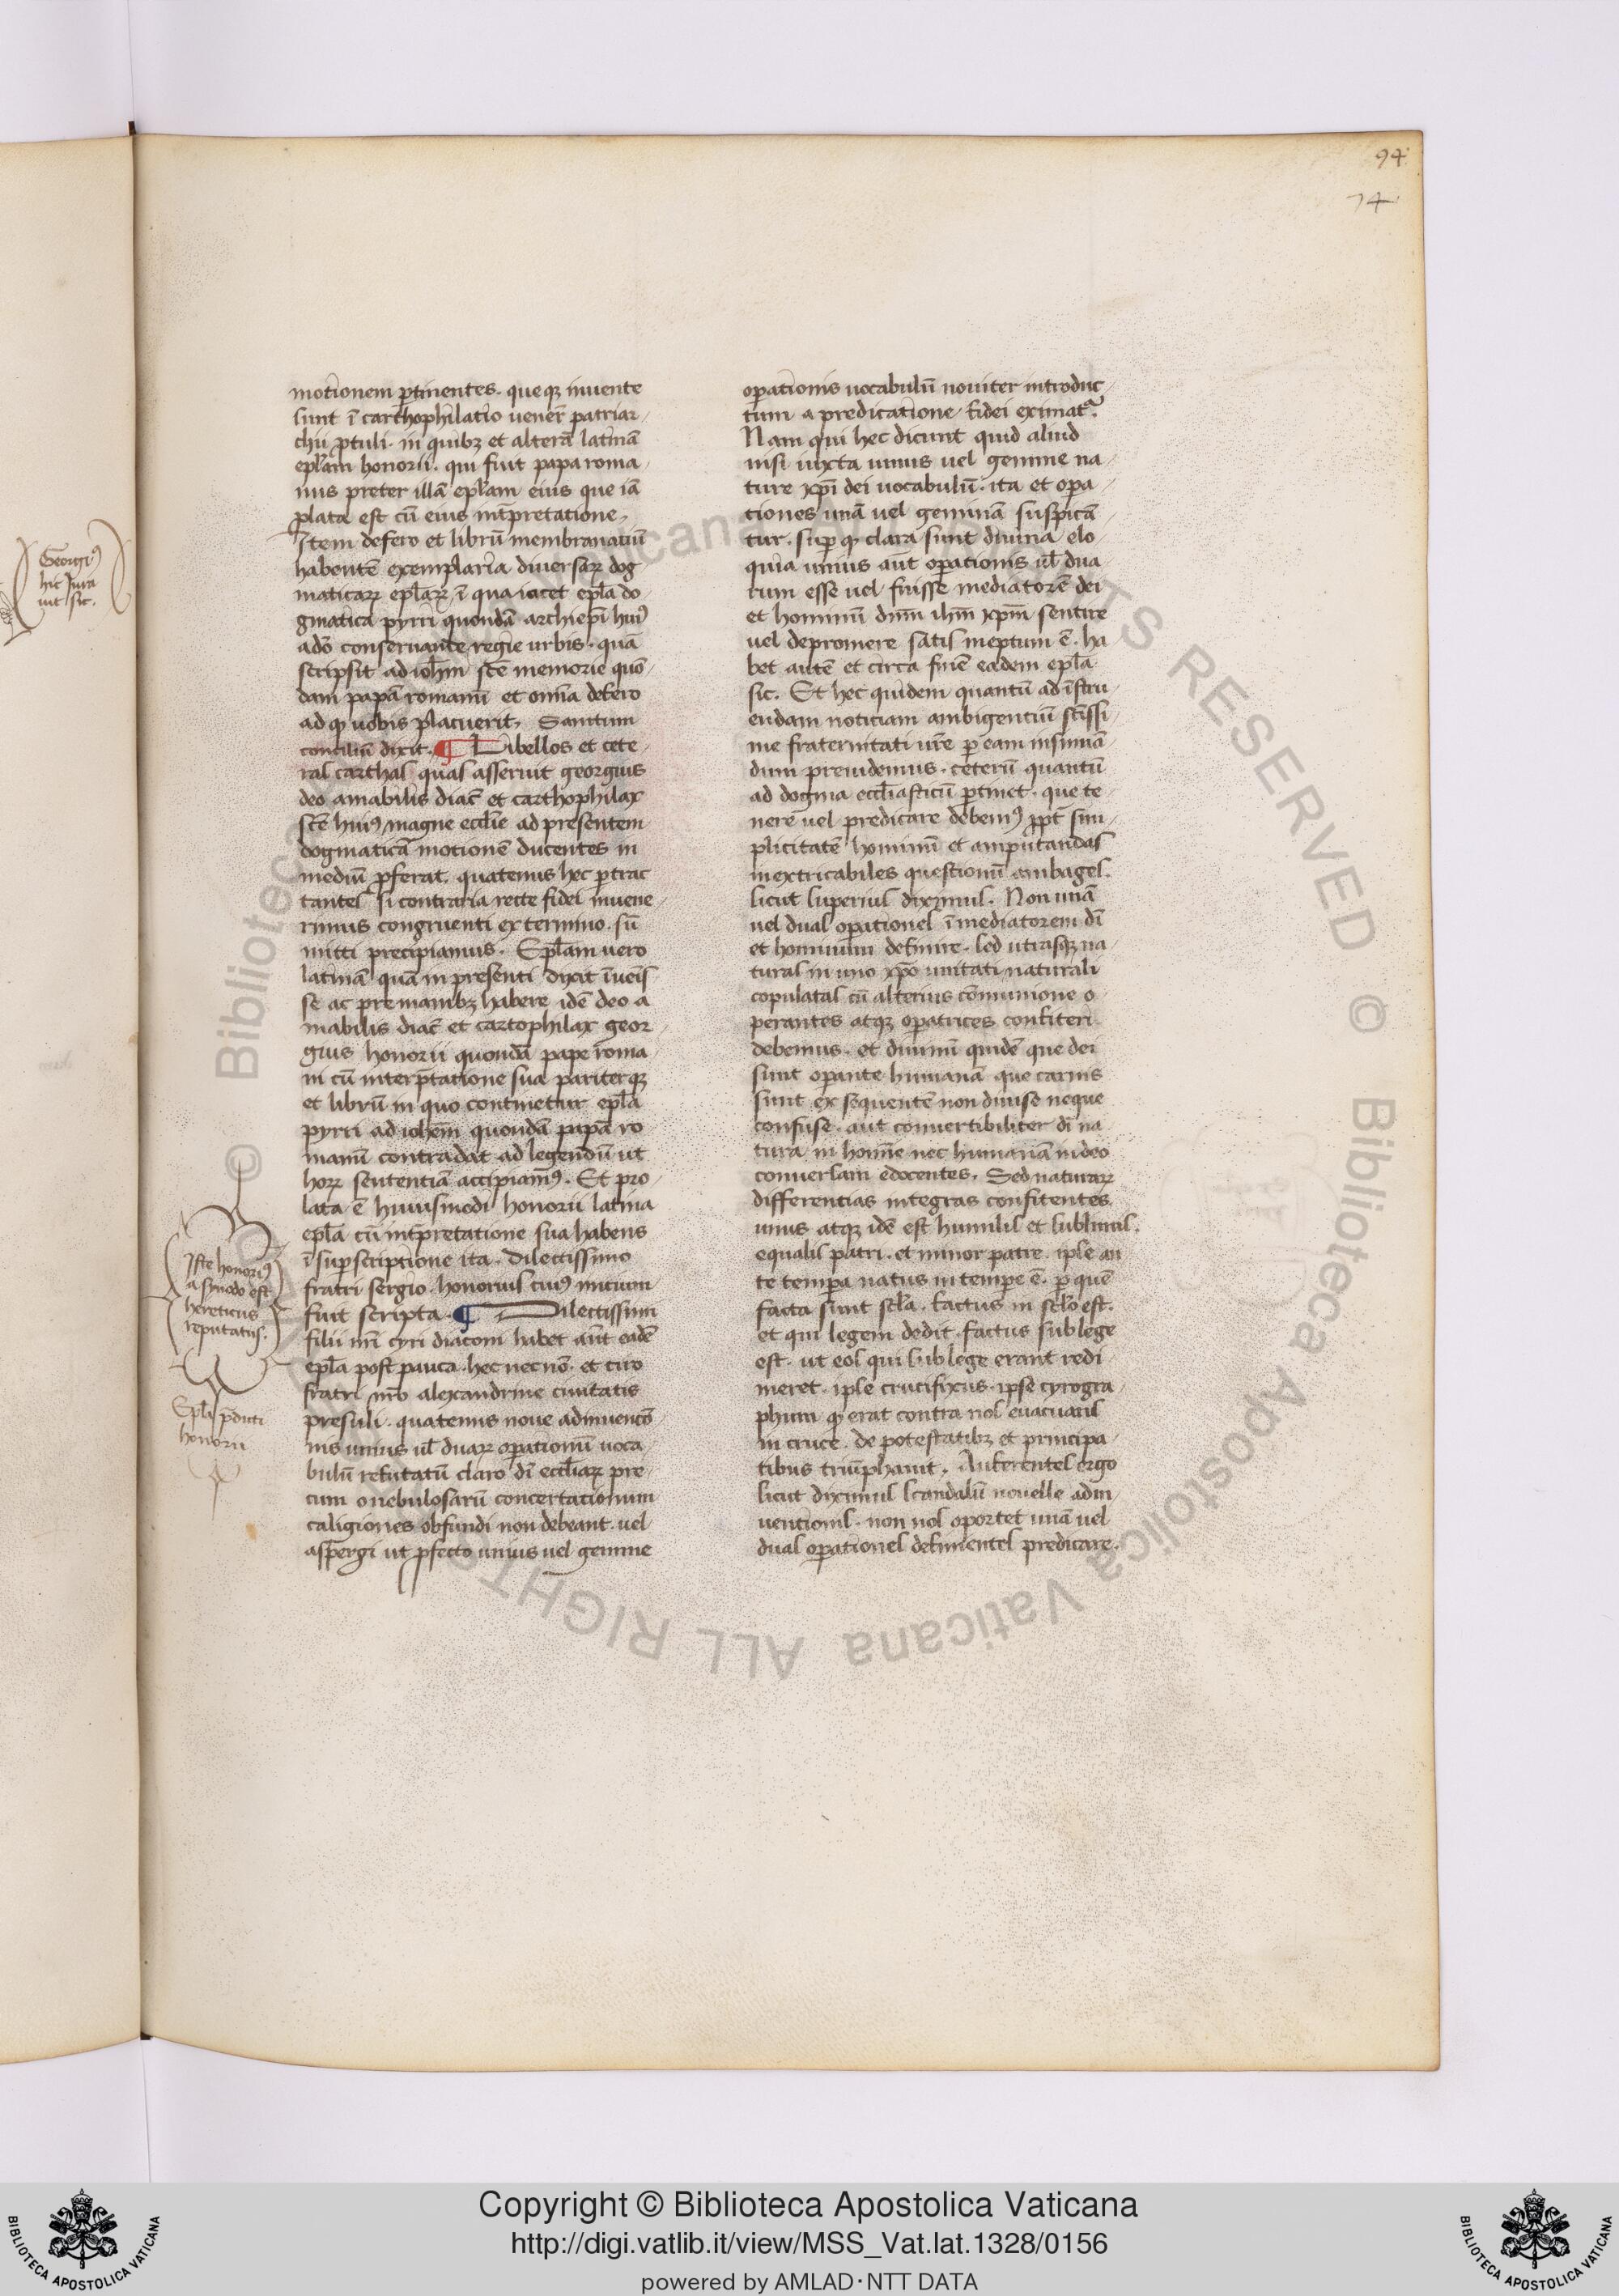 94
74
Georgi⁹
hic Jura
uit sic.
motionem p̲tinentes. queqȝ inuente
sunt ī carthophilatio uener̄ patriar-
chij ꝓtuli. in quibȝ et alterā latinā
ep̄lam honorii. qui fuit papa roma-
nus preter illā ep̄lam eius que iā
plata est cū eius int̄pretatione.
Item defero et librū membranatiū
habentē exemplaria diuersaꝝ dog
maticaꝝ ep̄laꝝ, ī qua iacet ep̄la do-
gmatica pyrri quondā archiep̄i hui⁹
a deo conseruante regie urbis. quā
scripsit ad ioh̄m sc̄e memorie quō-
dam papā romanū et omīa defero
ad qȝ uobis placuerit, Sanctum
conciliū dixit. ¶ Libellos et cete-
ras carthas quas asseruit georgius
deo amabilis diac̄ et carthophilax
sc̄e hui⁹ magne eccl̄ie ad presentem
dogmaticā motionē ducentes in
mediū ꝓferat. quatenus hec p̲trac
tantes si contraria recte fidei inuene-
rimus congruenti ex termino. sū
mitti precipiamus. Ep̄lam uero
latinā quā in presenti dixit īueīs
se ac pre manibȝ habere idē deo a
mabilis diac̄ et cartophilax geor
gius honorii quondā pape roma-
ni cū interp̄tatione sua pariterqȝ
et librū in quo continetur ep̄la
pyrri ad ioh̄em quondā papā ro
manū contradat ad legendū ut
hoꝝ sententiā accipiam⁹. Et pro-
lata ē huiusmodi honorii latina
ep̄la cū int̄pretatione sua habens
ī sup̲scriptione ita. Dilectissimo
fratri sergio. honorius cui⁹ initium
fuit scripta. ¶ Dilectissimi
filii nr̄i cyri diaconi habet aūt eadē
ep̄la post pauca. hec necnō. et ciro
fratri nr̄o alexandrine ciuitatis
presuli. quatenus noue adinuenc̄o-
nis unius ul̄ duaꝝ op̲ationū uoca-
bulū refutatū claro dī eccl̄iaꝝ pre-
cum o nebulosarū concertationum
caligiones obfundi non debeant. uel
asp̲ergi ut ꝓfecto unius uel gemine
Iste honori⁹
a synodo est
hereticus
reputatus.
Ep̄la p̄dicti
honorii
op̲ationis uocabulū nouiter introduc-
tum a predicatione fidei eximat᷑.
Nam qui hec dicunt quid aliud
nisi iuxta unius uel gemine na-
ture xp̄i dei uocabulū. ita et op̲a-
tiones unā uel geminā suspicā-
tur. sup̲ qȝ clara sunt diuina elo-
quia unius aut op̲ationis ul̄ dua-
rum esse uel fuisse mediatorē dei
et hominū dn̄m ih̄m xp̄m sentire
uel depromere satis ineptum ē. ha
bet autē et circa finē eadem ep̄la
sic. Et hec quidem quantū ad īstru-
endam noticiam ambigentiū sc̄issi-
me fraternitati ur̄e p̲ eam insinuā-
dum preuidemus. ceterū quantū
ad dogma eccl̄iasticū p̲tinet. que te-
nere uel predicare debem⁹ ꝓpt̄ sim-
plicitatē hominū et amputandas
inextricabiles questionū ambages.
sicut superius diximus. Non unā
uel duas op̲ationes ī mediatorem dī
et hominum definire. sed utrasqȝ na-
turas in uno xp̄o unitati naturali
copulatas cū alterius cōmunione o-
perantes atqȝ op̲atrices confiteri
debemus. et diuinū quidē que dei
sunt op̲ante humanā que carnis
sunt exsequentē non diuise neque
confuse. aut conuertibiliter dī na
tura in homīē nec humanā in deo
conuersam edocentes. Sed naturaꝝ
differentias integras confitentes.
unus atqȝ idē est humilis et sublimis.
equalis patri. et minor patre. ipse an
te temp̲a natus in temp̲e ē. p̲ quē
facta sunt sc̄la. factus in sc̄lo est.
et qui legem dedit. factus sub lege
est. ut eos qui sub lege erant redi-
meret. ipse crucifixus. ipse cyrogra-
phum qȝ erat contra nos euacuans
in cruce. de potestatibȝ et principa-
tibus triūphauit. Auferentes ergo
sicut diximus scandalū nouelle adin-
uentionis. non nos oportet unā uel
duas op̲ationes definientes predicare.
© Biblioteca Apostolica Vaticana ALL RIGHTS RESERVED © Biblioteca Apostolica Vaticana ALL RIGHTS RESERVED
Copyright © Biblioteca Apostolica Vaticana
http://digi.vatlib.it/view/MSS_Vat.lat.1328/0156
powered by AMLAD·NTT DATA
BIBLIOTECA APOSTOLICA VATICANA
BIBLIOTECA APOSTOLICA VATICANA